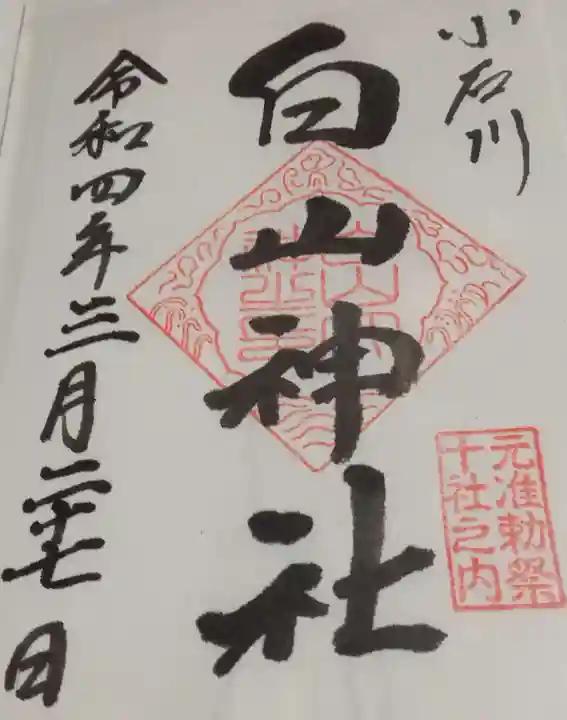 小石川
元准勅祭
十社之内
白山神社
令和四年三月二十七日